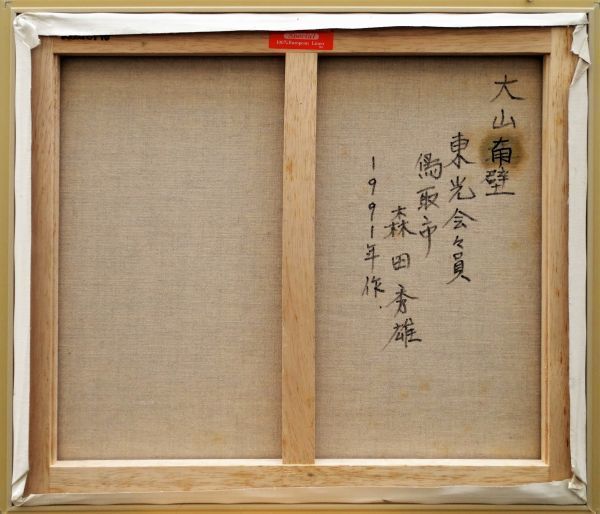 大山南壁
東光会々員
鳥取市
森田秀雄
1991年作.
100% European Linen